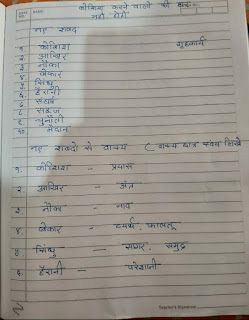 कोशिश करने वालों की
नही होती
नए शब्द
१. कोशिश गृहकार्य
२ आखिर
३ नौका
४ बेकार
५ सिंधु
६ हैरानी
७
८ सहज
९ चुनौती
१०. मैदान
नए शब्दों से वाक्य ( वाक्य छात्र स्वयं लिखें
१. कोशिश - प्रयास
२ आखिर - अंत
३. नौका - नाव
४ बेकार - व्यर्थ, फालतू
५ सिंधु - सागर, समुद्र
६ हैरानी - परेशानी
Teacher's Signature